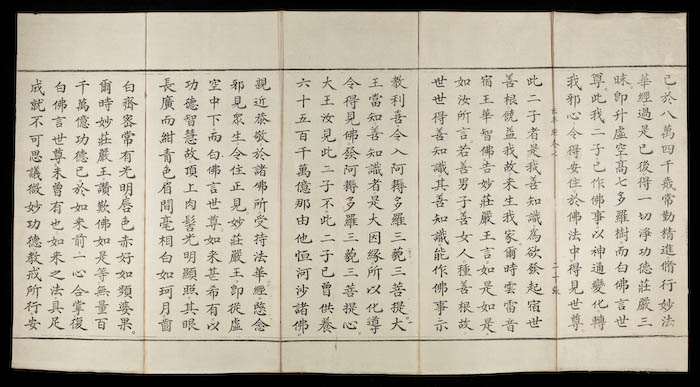 已於八萬四千歲常勤精進脩行妙法
華經過是已後得一切淨功德莊嚴三
昧即升虛空高七多羅樹而白佛言世
尊此我二子已作佛事以神通變化轉
我邪心令得安住於佛法中得見世尊
此二子者是我善知識為欲發起宿世
善根饒益我故来生我家爾時雲雷音
宿王華智佛告妙莊嚴王言如是如是
如汝所言若善男子善女人種善根故
世世得善知識其善知識能作佛事示
教利喜令入阿耨多羅三藐三菩提大
王當知善知識者是大因緣所以化導
令得見佛發阿耨多羅三藐三菩提心
大王汝見此二子不此二子已曾供養
六十五百千萬億那由他恒河沙諸佛
親近恭敬於諸佛所受持法華經愍念
邪見衆生令住正見妙莊嚴王即從虛
空中下而白佛言世尊如来甚希有以
功德智慧故頂上肉髻光明顯照其眼
長廣而紺青色眉間毫相白如珂月齒
白齊密常有光明唇色赤好如頻婆果。
爾時妙莊嚴王讚歎佛如是等無量百
千萬億功德已於如来前一心合掌復
白佛言世尊未曾有也如来之法具足
成就不可思議微妙功德教戒所行安